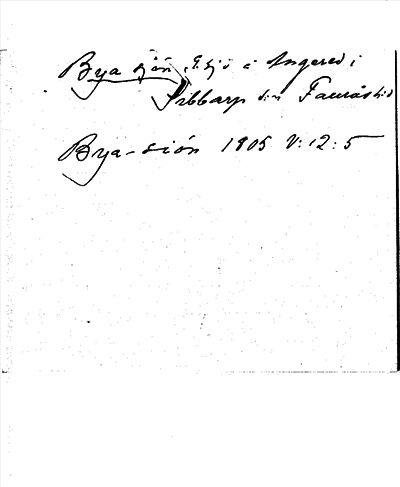 Bya sjön, sjö i Ingered i
Sibbarp sn Faurås hd
Bya-sión 1905 V:12:5